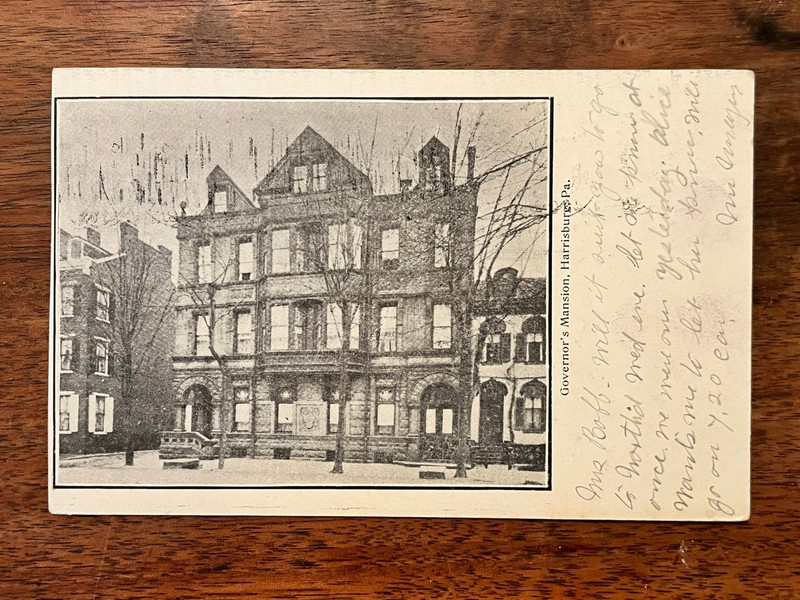 Governor's Mansion, Harrisburg, Pa.
Mrs Roff - Will it suit you to go
to North'd Wed eve. let me know at
once. we were over yesterday. Alice
wants me to let her know, will
go on 7,20 car,